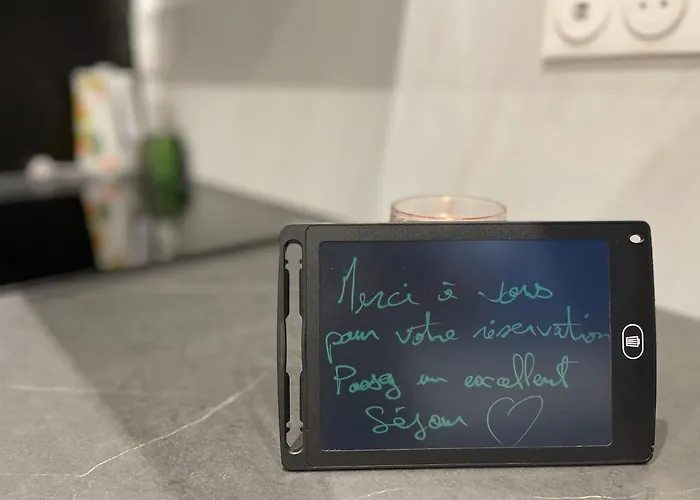 Merci à vous
pour votre réservation
Passez un excellent
Séjour ♡